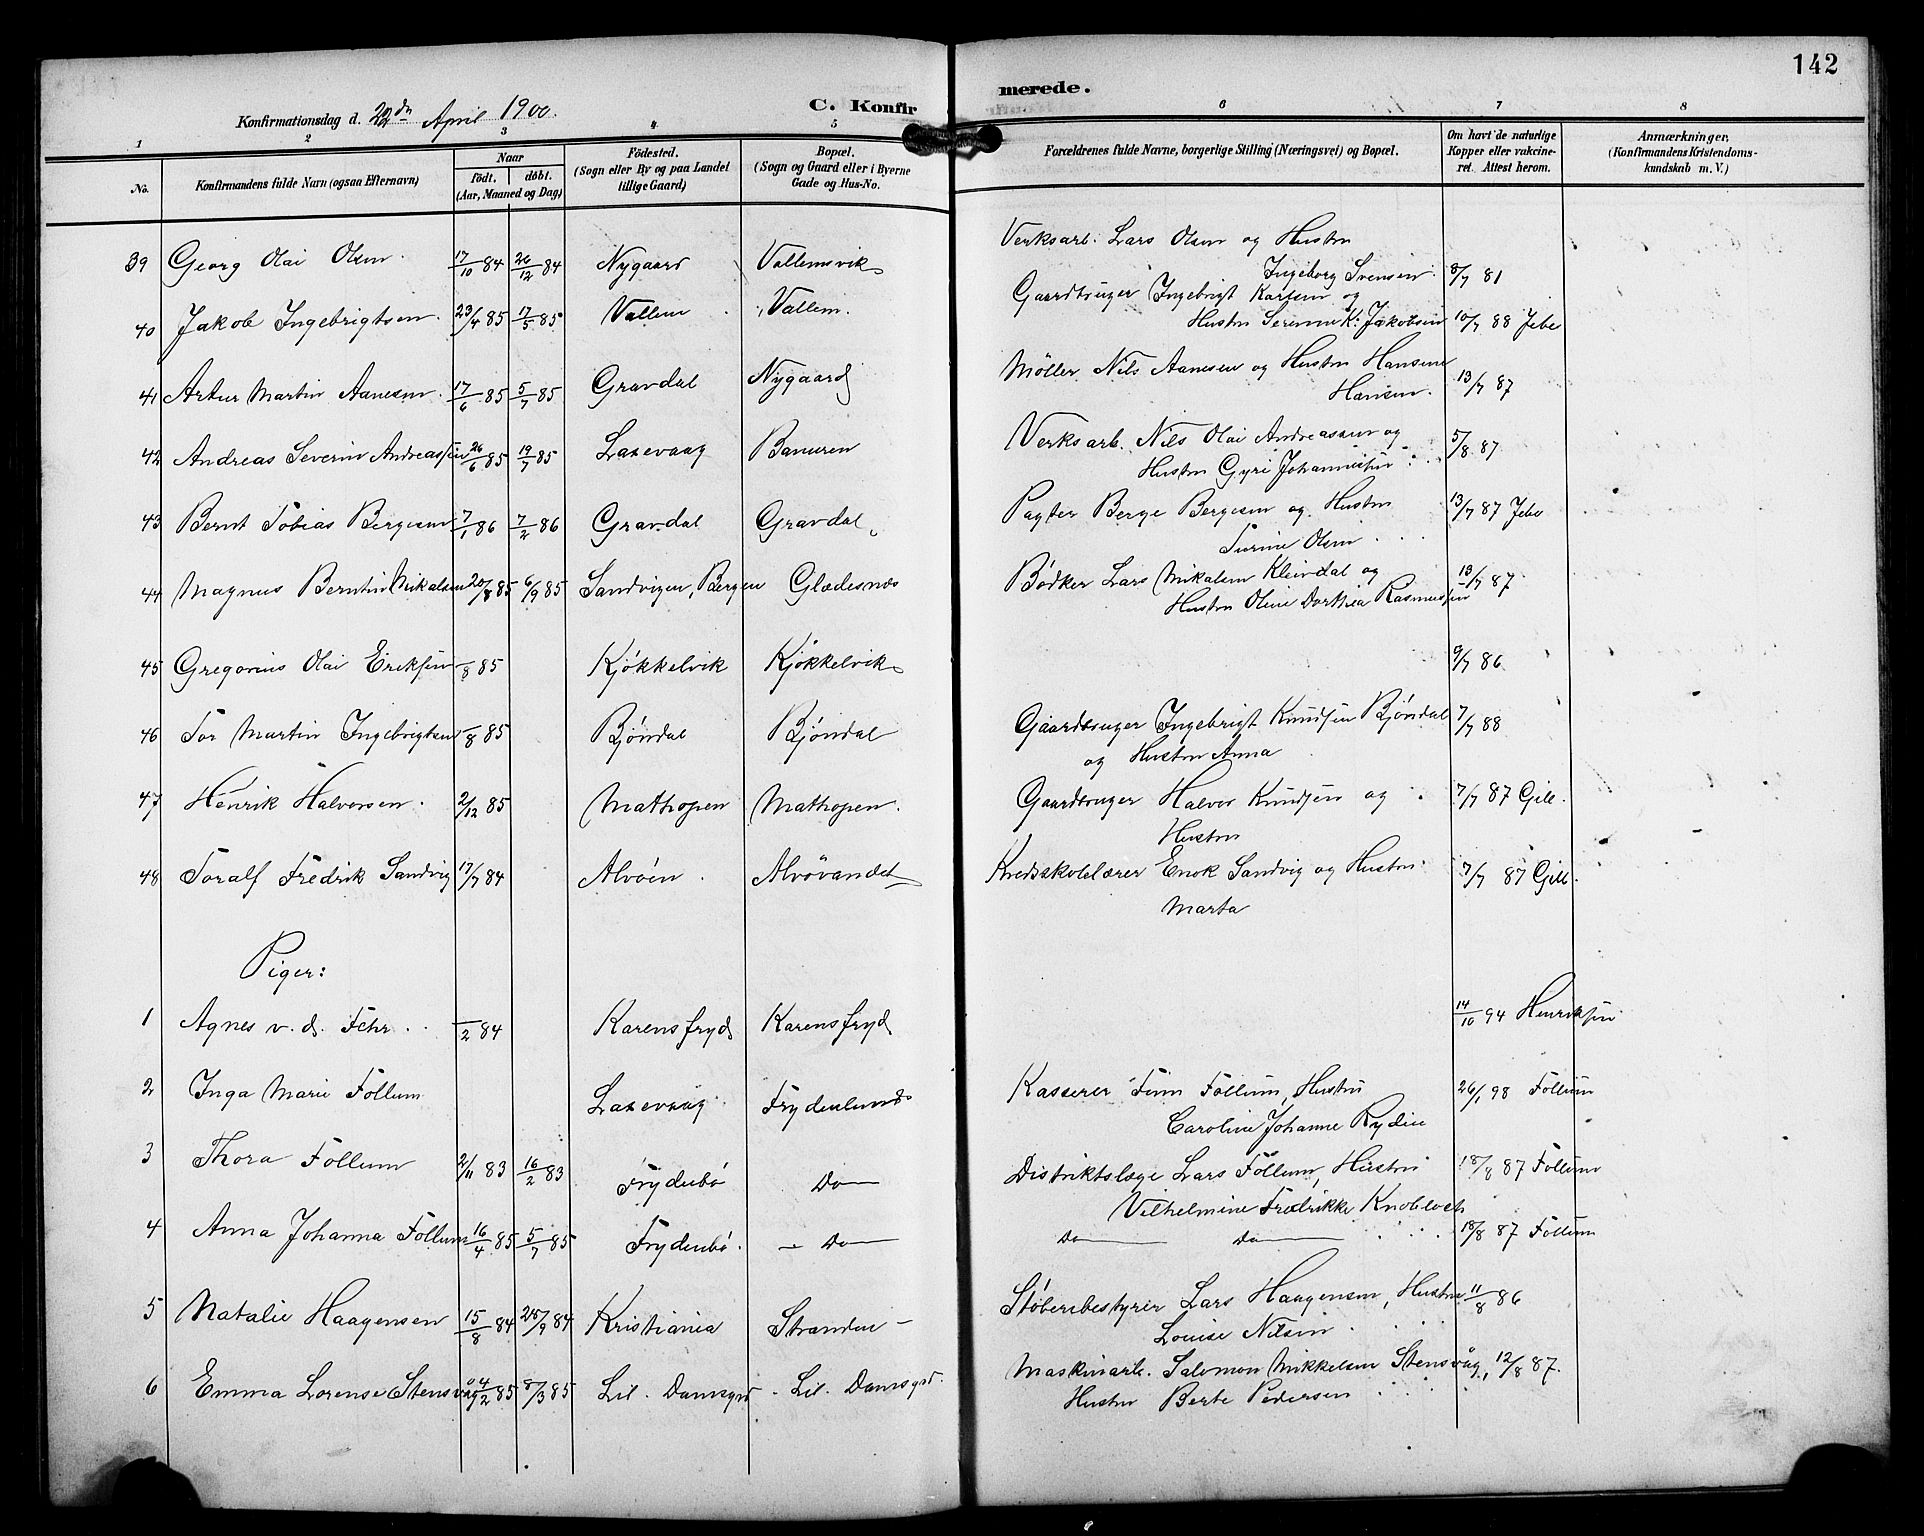 142
Konfirmationsdag d. 22dn April 1900.
C. Konfirmerede.
1 2 3 4 5 6 7 8
No.
Konfirmandens fulde Navn (ogsaa Efternavn)
Naar
födt. döbt.
(Aar, Maaned og Dag)
Födested.
(Sogn eller By og paa Landet
tillige Gaard)
Bopæl.
(Sogn og Gaard eller i Byerne
Gade og Hus-No.
Forældrenes fulde Navne, borgerlige Stilling (Næringsvei) og Bopæl.
Om havt de naturlige
Kopper eller vakcine-
ret. Attest herom.
Anmærkninger,
(Konfirmandens Kristendoms-
kundskab m. V.)
39 Georg Olai Olsen. 17/10 84 26/12 84 Nygaard Vallemsvik Verksarb. Lars Olsen og Hustru
Ingeborg Svensen. 8/7 81
40 Jakob Ingebrigtsen. 23/4 85 17/5 85 Vallem Vallem. Gaardbruger Ingebrigt Karlsen og
Hustru Serine K. Jakobsen 10/7 88 Jebe
41 Artur Martin Aanesen. 17/6 85 5/7 85 Gravdal Nygaard Möller Nils Aanesen og Hustru Hansine
Hansen. 13/7 87
42 Andreas Severin Andreassen 26/6 85 19/7 85 Laxevaag Baneren Verksarb. Nils Olai Andreassen og
Hustru Gyri Johannessen 5/8 87
43 Bernt Tobias Bergesen 7/1 86 7/2 86 Gravdal Gravdal Pagter Berge Bergesen og Hustru
Turine Olsen 13/7 87 Jebe
44 Magnus Berntin Mikalsen 20/8 85 6/9 85 Sandvigen, Bergen Glædesnæs Bödker Lars Mikalsen Kleivdal og
Hustru Oline Dorthea Rasmussen 13/7 87
45 Gregorius Olai Eriksen /8 85 Kjökkelvik Kjökkelvik 9/7 86
46 Tor Martin Ingebrigtsen /8 85 Bjöndal Bjöndal Gaardbruger Ingebrigt Knudsen Bjöndal
og Hustru Anna 7/7 88
47 Henrik Halvorsen. 2/12 85 Mathopen Mathopen. Gaardbruger Halvor Knudsen og
Hustru 7/7 87 Gill.
48 Toralf Fredrik Sandvig 17/7 84 Alvöen. Alvövandet Kredsskolelærer Enok Sandvig og Hustru
Marta 7/7 87 Gill.
Piger:
1 Agnes v. d. Fehr. /2 84 Karensfryd Karensfryd 14/10 94 Henriksen
2 Inga MarieFöllum Laxevaag Frydenlund Kasserer Finn Föllum, Hustru
Caroline Johanne Rydin 26/1 98 Föllum
3 Thora Föllum 2/11 83 16/2 83 Frydenbö Do Distriktslæge Lars Föllum, Hustru
Vilhelmine Fredrikke Knobloch 18/8 87 Föllum
4 Anna Johanna Föllum 16/4 85 5/7 85 Frydenbö. Do Do Do 18/8 87 Föllum
5 Natalie Haagensen 15/8 84 28/9 84 Kristiania Stranden Stöberibestyrer Lars Haagensen, Hustru
Louise Nilsen 11/8 86
6 Emma Lorense Stensvåg 4/2 85 8/3 85 Lil. Damsgrd Lil. Damsgrd. Maskinarb. Salomon Mikkelsen Stensvåg,
Hustru Berte Pedersen 12/8 87.